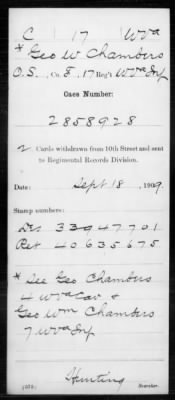 C 17 W Va
* Geo W Chambers
O.S., Co. F. 17 Reg't W Va Inf
Case Number:
2858928
2 Cards withdrawn from 10th Street and sent
to Regimental Records Division.
Date: Sept 18, 1909.
Stamp numbers:
Des 33947701
Ret 40635675
* See Geo Chambers
4 W Va Cav &
Geo Wm Chambers
7 W Va Inf
Hunting
Searcher.